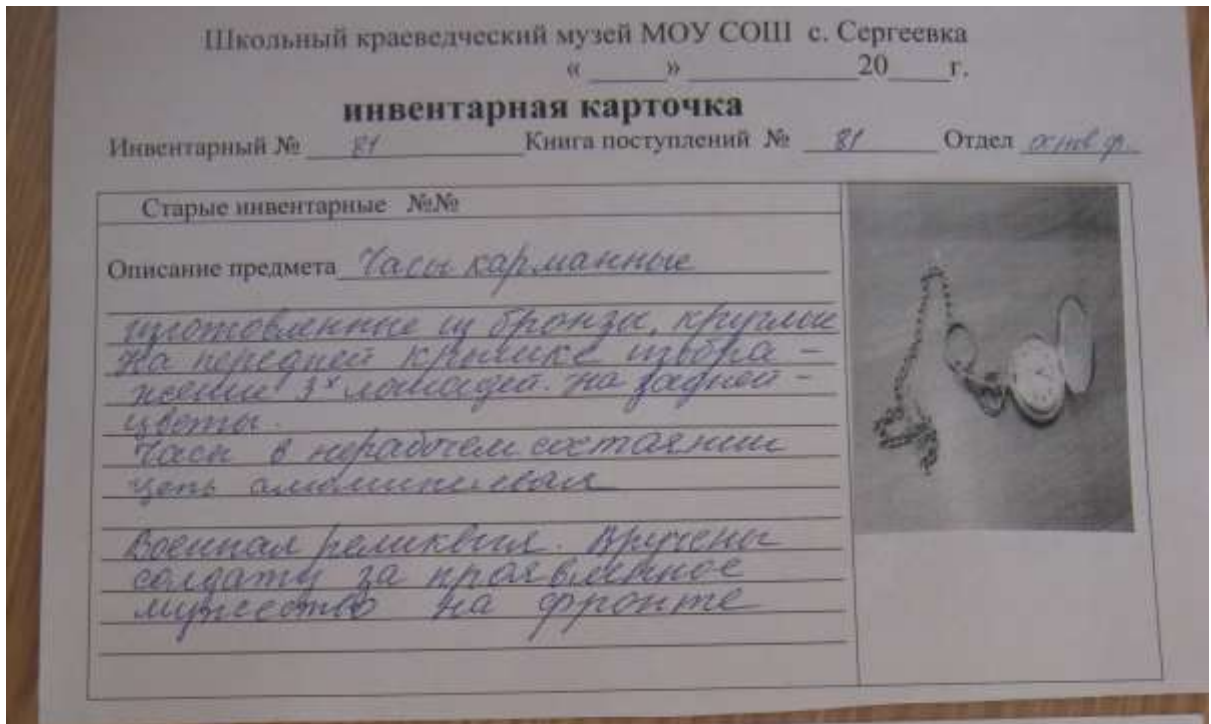 Школьный краеведческий музей МОУ СОШ с. Сергеевка
« _____ » ____________ 20 ____ г.
инвентарная карточка
Инвентарный № 81 Книга поступлений № 81 Отдел основ ф.
Старые инвентарные №№
Описание предмета Часы карманные
изготовленные из бронзы, круглые
На передней крышке изобра-
жении 3х лошадей. На задней -
цветы.
Часы в нерабочем состоянии
цепь алюминиевая
Военная реликвия. Вручены
солдату за проявленное
мужество на фронте